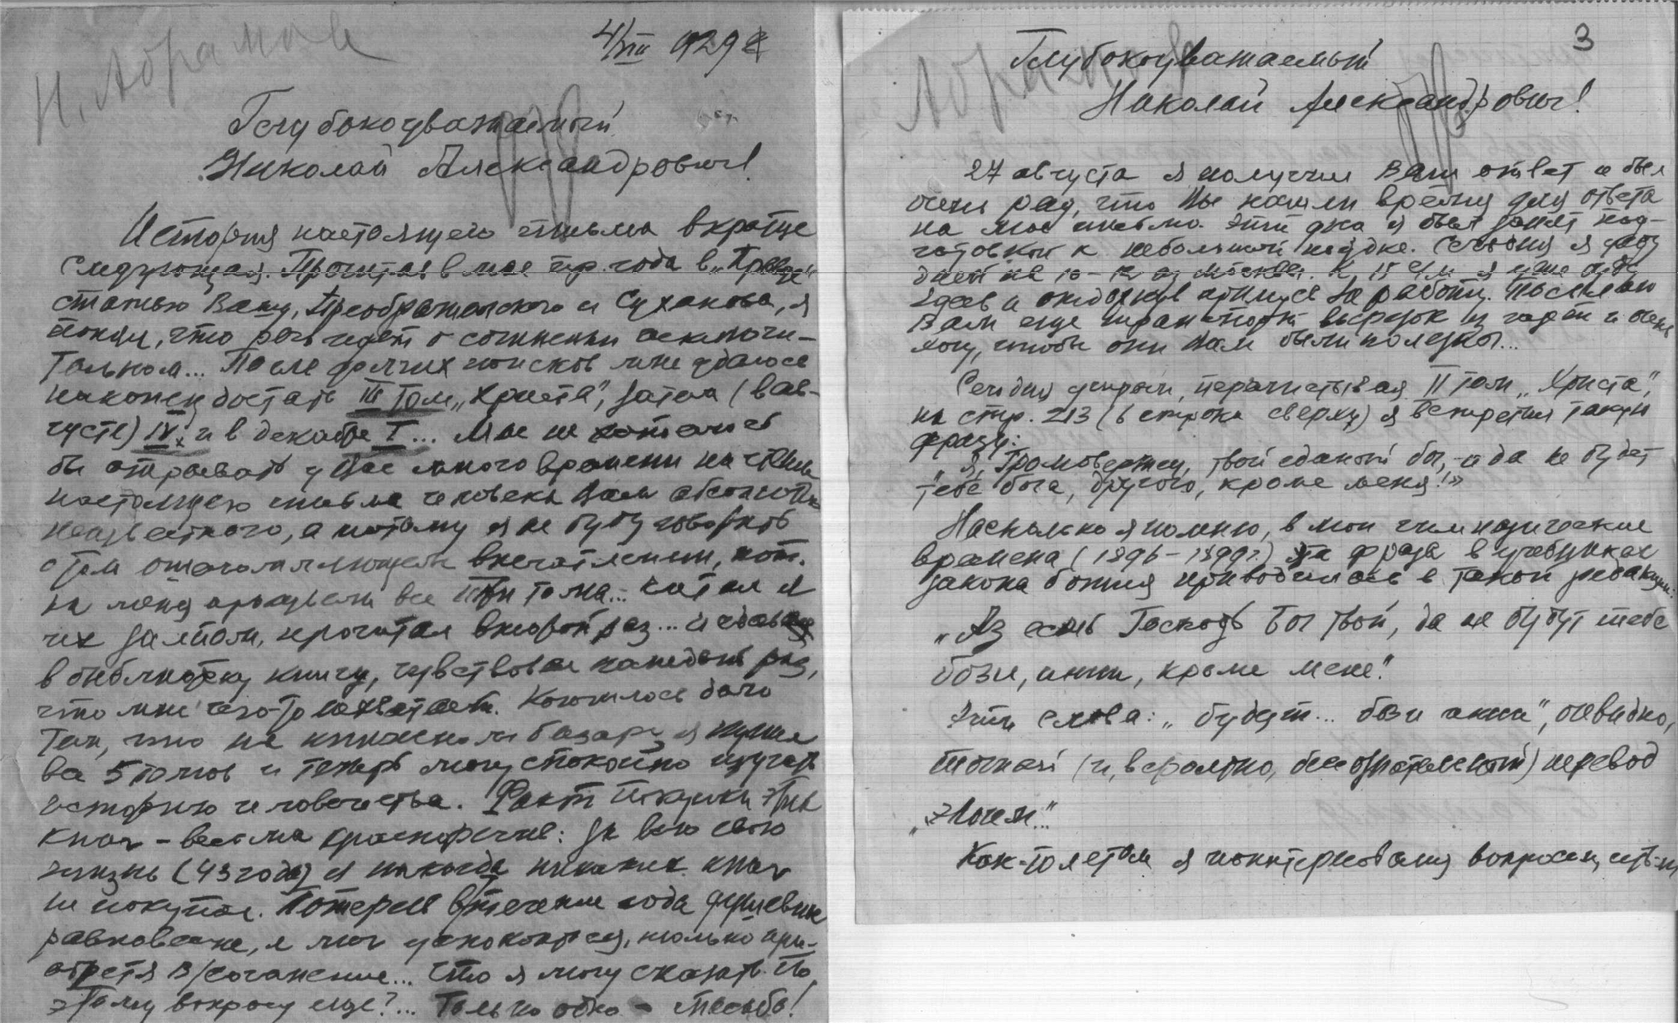 Н. Абрамов
4/VIII 929 г
Глубокоуважаемый
Николай Александрович!
История настоящего письма вкратце
следующая. Прочитав в мае тек. года в „Правде"
статью Вашу, Преображенского и Суханова, я
понял, что речь идет о сочинении исключи-
тельном... После долгих поисков мне удалось
наконец достать III том „Христа", затем (в ав-
густе) IV, и в декабре I... Мне не хотелось
бы отрывать у Вас много времени на чтение
настоящего письма человека Вам абсолютно
неизвестного, а потому я не буду говорить
о том ошеломляющем впечатлении, кот.
на меня произвели все три тома...
их залпом, прочитал второй раз... и сдавая
в библиотеку книгу, чувствовал каждый раз,
что мне чего-то не хватает. Кончилось дело
тем, что на книжном базаре я купил
все 5 томов и теперь могу спокойно изучать
историю человечества. Факт покупки этих
книг – весьма красноречив: за всю свою
жизнь (43 года) я никогда никаких книг
не покупал. Потеряв в течение года душевное
равновесие, я мог успокоиться, только при-
обретя В/сочинение... Что я могу сказать по
этому вопросу еще?... Только одно – спасибо!
3
Абрамов
Глубокоуважаемый
Николай Александрович!
27 августа я получил Ваш ответ и был
очень рад, что Вы нашли время для ответа
на мое письмо. Эти дни я был занят под-
готовкой к небольшой поездке. Сегодня я еду
дней на 10–12 из Москвы. К 15 я уже буду
здесь и отдохнув примусь за работу. Посылаю
Вам еще вырезок из газет и очень
хочу, чтобы они Вам были полезны...
Сегодня утром, перечитывая II том „Христа",
на стр. 213 (6 строка сверху) я встретил такую
фразу:
„Я, Громовержец, твой единый бог, и да не будет
тебе бога, другого, кроме меня!»
Насколько я помню, в мои гимназические
времена (1896–1899 г.) эта фраза в учебниках
закона божия приводилась в такой редакции:
„Аз есмь Господь Бог твой, да не будут тебе
бози, инии, кроме мене".
Эти слова: „будут... бози инии", очевидно,
точный (и, вероятно, бессознательный) перевод
„Элогим"..
Как-то летом я поинтересовался вопросом,